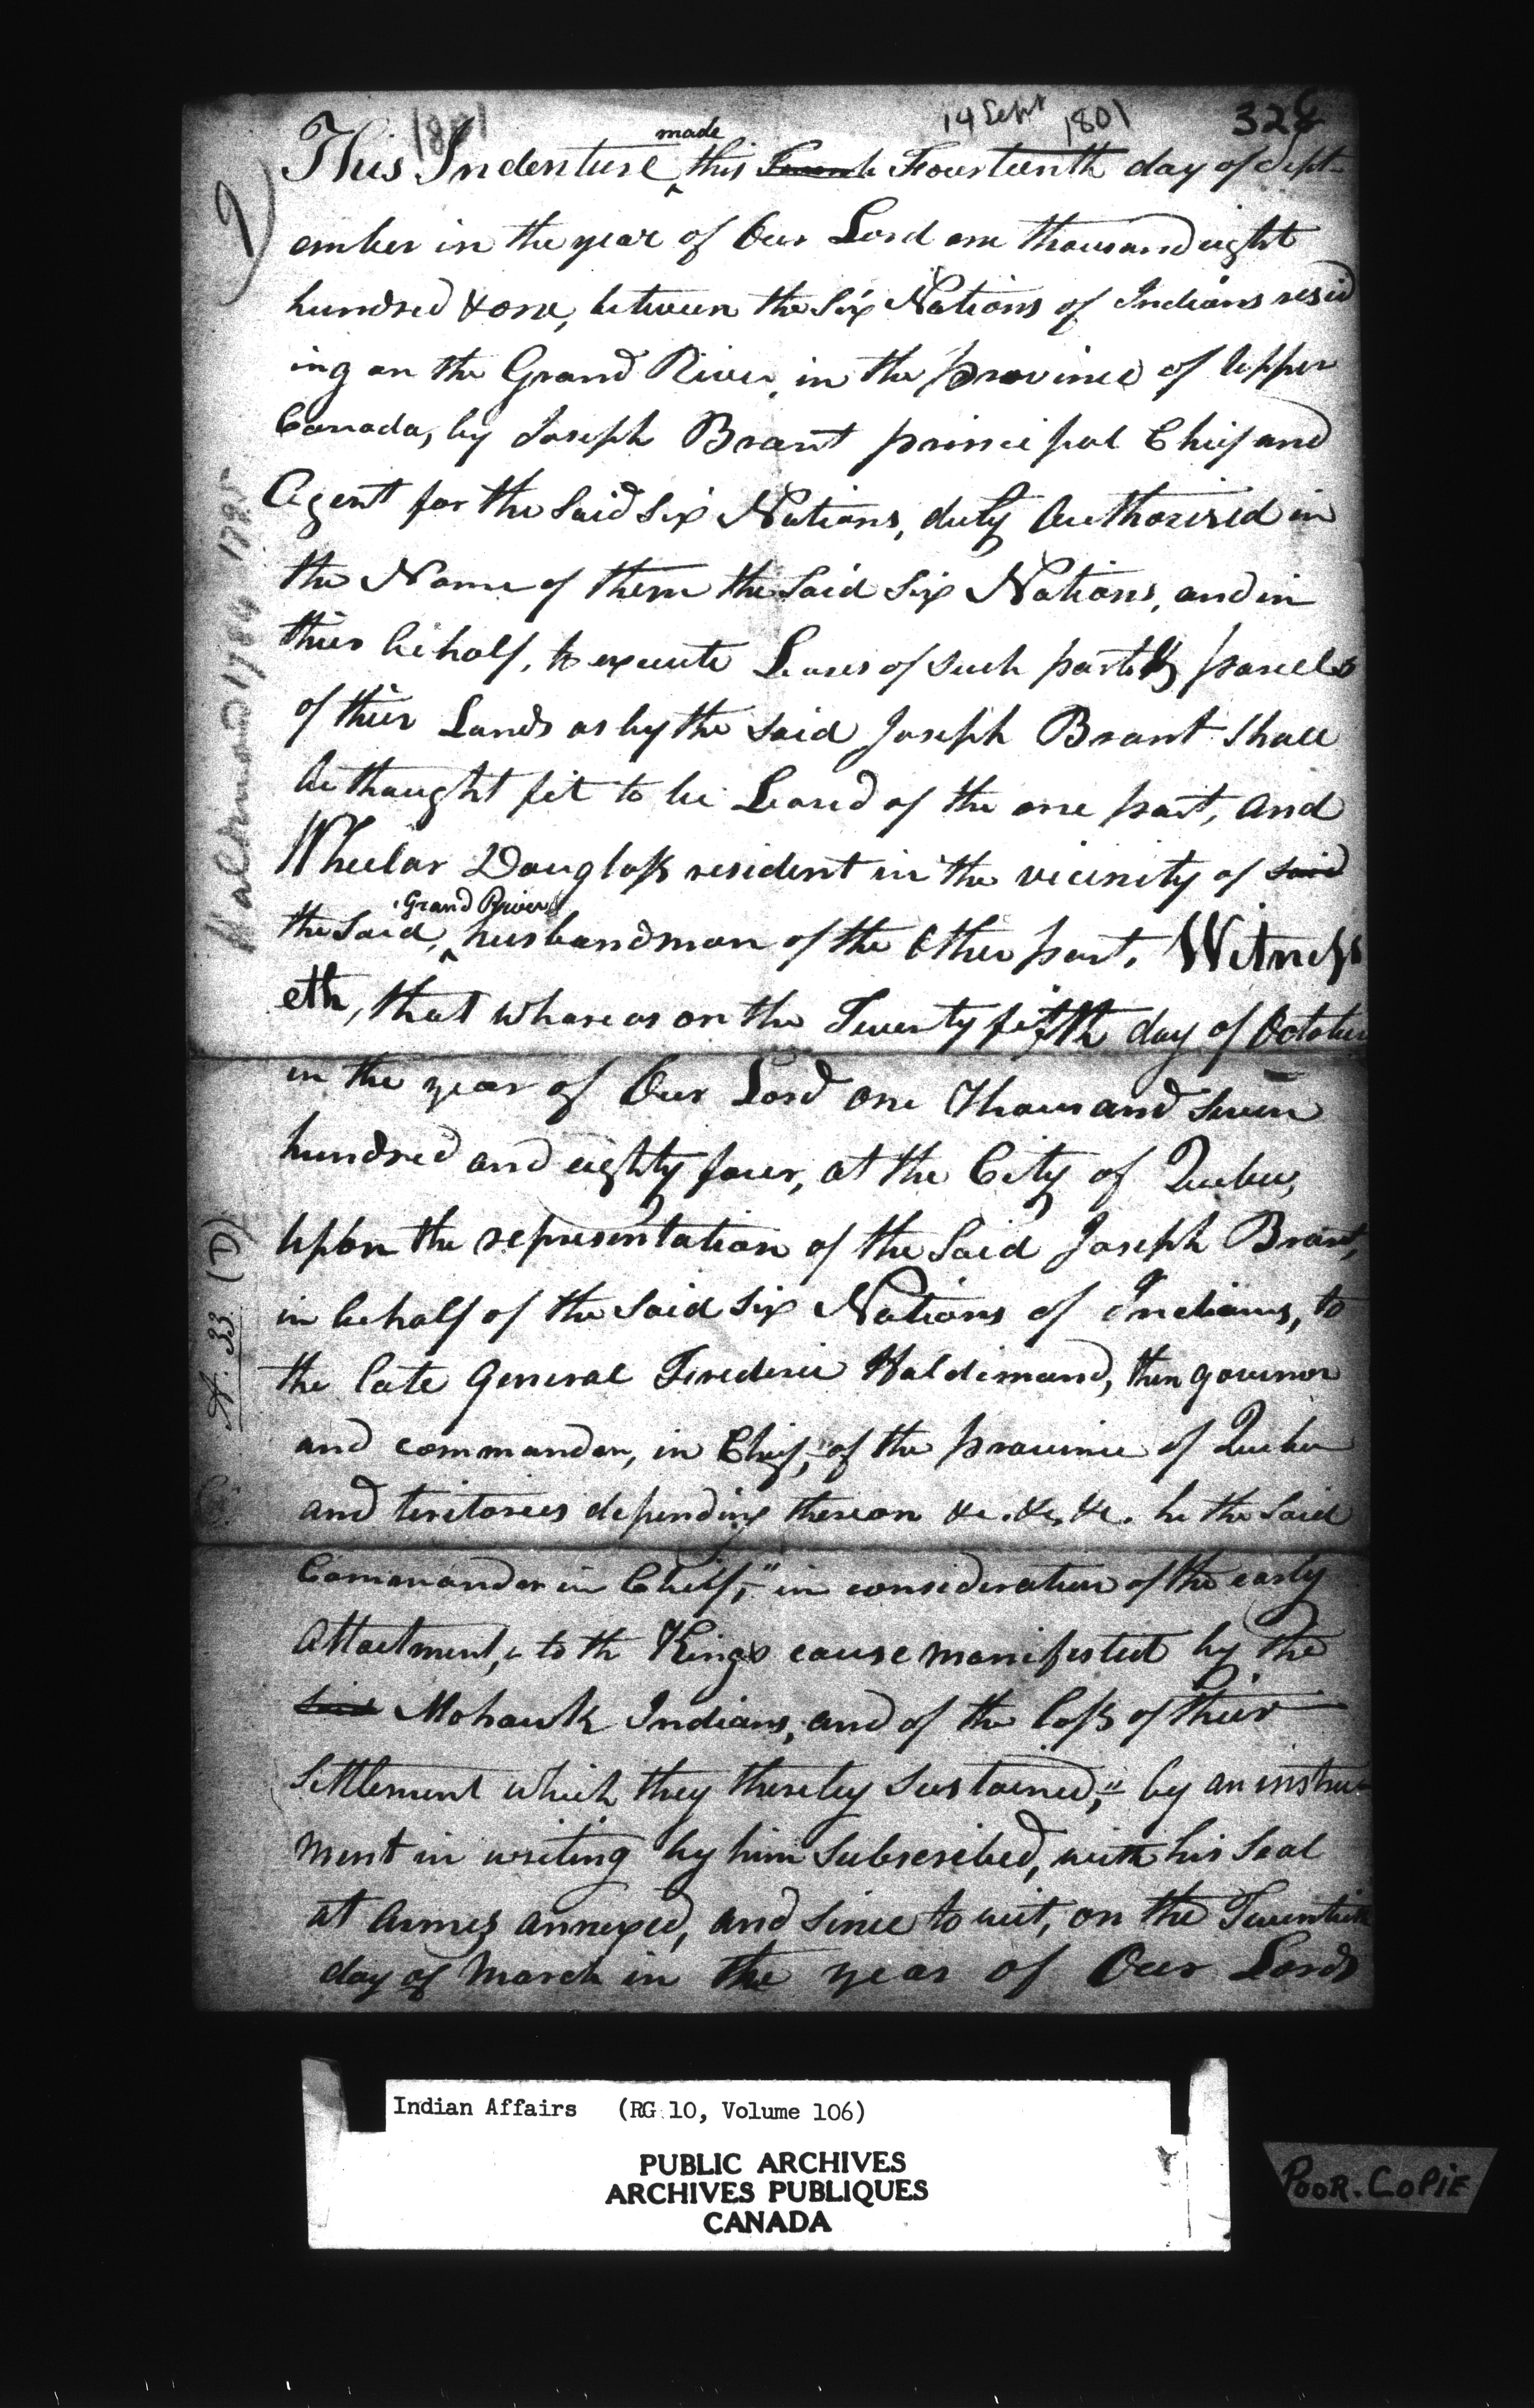 1801
14 Sept 1801
328
made
This Indenture this Fourteenth day of Sept-
ember in the year of Our Lord one thousand eight
hundred & one, between the Six Nations of Indians resid
ing on the Grand River, in the province of Upper
Canada, by Joseph Brant principal Chief and
Agent for the Said Six Nations, duly Authorised in
the Name of them the Said Six Nations, and in
their behalf, to execute Leases of such parts & parcels
of their Lands as by the said Joseph Brant Shall
be thought fit to be Leased of the one part, and
Wheelar Douglass resident in the vicinity of said
Grand River
the Said, husbandman of the Other part, Witness
eth, that whereas on the Twenty fifth day of October
in the year of Our Lord one Thousand Seven
hundred and eighty four, at the City of Quebec,
Upon the representation of the Said Joseph Brant,
in behalf of the Said Six Nations of Indians, to
the late General Frederic Haldimand, then governor
and commander, in Chief, of the province of Quebec
and teritories depending thereon &c. &c. &c. he the Said
Comanander in Cheif, " in consideration of the early
Attactment, to th Kings cause manifested by the
said Mohawk Indians, and of the loss of their
Settlement which they thereby Sustained, " by an instru
ment in writing by him Subscribed, with his Seal
at Armes annexed, and Since to wit, on the Twentieth
day of March in the year of Our Lord
Haldimand 1784 1785
A. 33 (D)
Indian Affairs (RG 10, Volume 106)
PUBLIC ARCHIVES
ARCHIVES PUBLIQUES
CANADA
POOR. COPIE